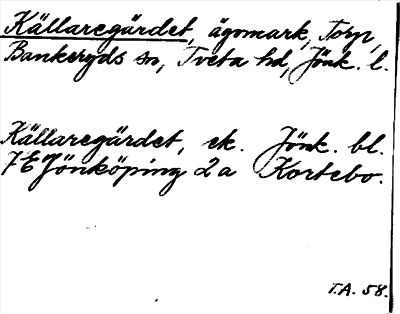 Källaregärdet, ägomark, Torp,
Bankeryds sn, Tveta hd, Jönk. l.
Källaregärdet, ek. Jönk. bl.
7E Jönköping 2a Kortebo.
T.A. 58.